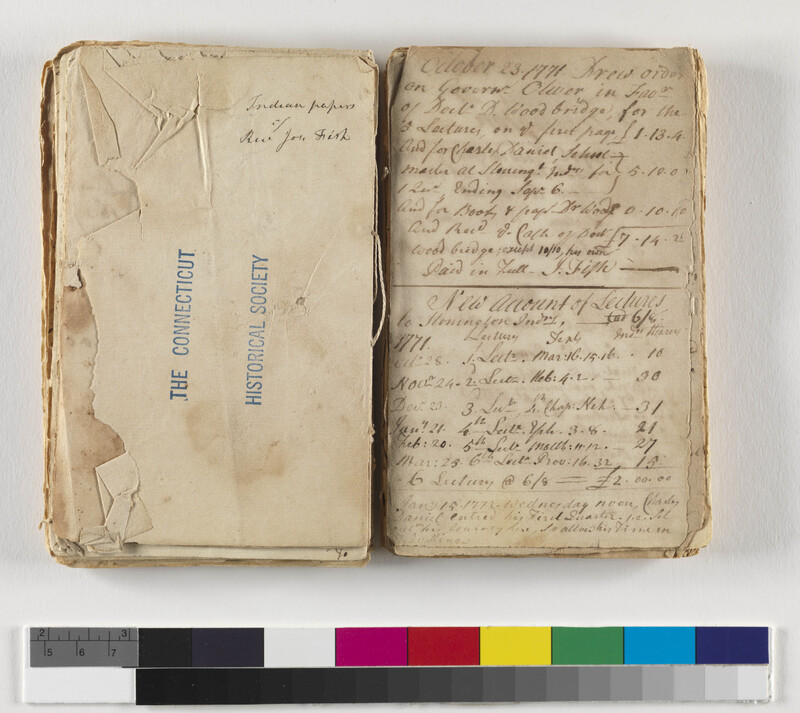 Indian papers
of
Revd Jos. Fish
THE CONNECTICUT
HISTORICAL SOCIETY
October 23. 1771 Drew order
on Governr. Oliver in Favr.
of Doctr. D. Woodbridge, for the
5 Lectures, on ye. first page £1-13-4
And for Charles Daniel, School
master at Stoningt. Indns. for 5-10-0
1 Qur. Ending Sepr. 6.
And for Books & papr. Dr. Wood 0-10-10
And Recd. ye. Cash of Doct £7-14-2
Woodbridge, except 10/10, his own
Paid in Full - J. Fish
New Account of Lectures
to Stonington Indns. 6/8
1771. Lecture Texts Indns. Hearers
Oct. 28. 1. Lectr. Mar: 16. 15-16. 10
Novr. 24. 2. Lectr. Heb: 4. 2. 30
Decr. 23. 3. Lectr. Chap. Neh. 31
Jany. 21. 4th Lectr. Eph. 3. 8. 21
Feb: 20. 5th Lectr. Matth: 11. 12. 27
Mar: 25. 6th Lectr. Prov: 16. 32 15
6 Lectures @ 6/8 = £2.00.00
Jany. 15. 1772. Wednesday noon, Charles
Daniel enters his First Quarter
his so allow his Time in
2 3
5 6 7